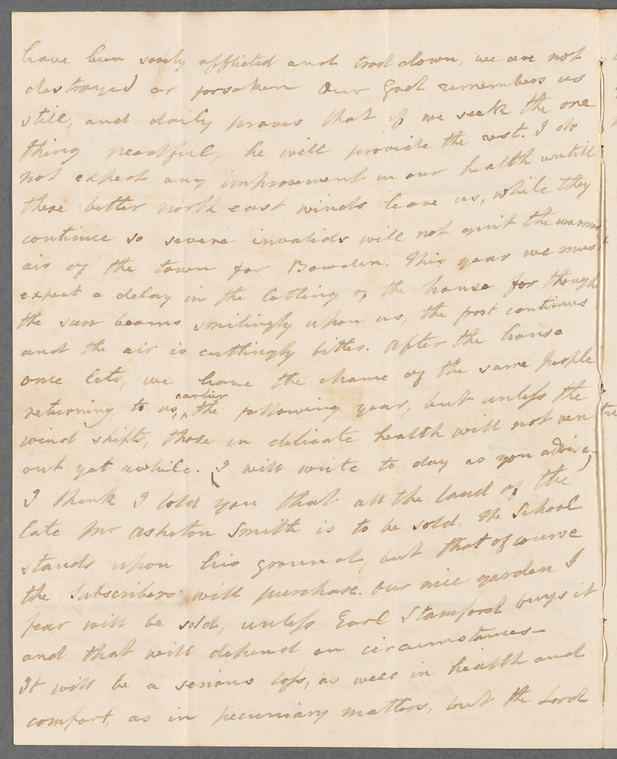 have been sorely afflicted and trod down, we are not
destroyed or forsaken Our God remembers us
still, and daily proves that if we seek the one
thing needful, he will provide the rest. I do
not expect any improvement in our health untill
these bitter north east winds leave us, while they
continue so severe invalids will not quit the warm
air of the town for Bowdon. This year we must
expect a delay in the letting of the house for though
the sun beams smilingly upon us, the frost continues
and the air is cuttingly bitter. After the house
once lets, we have the chance of the same people
returning to us, earlier the following year, but unless the
wind shifts, those in delicate health will not ventu
out yet awhile. (I will write to day as you advise)
I think I told you that all the land of the
late Mr Asheton Smith is to be sold. The School
stands upon his ground, but that of course
the Subscribers will purchase. Our nice garden I
fear will be sold, unless Earl Stamford buys it
and that will depend on circumstances—
It will be a serious loss, as well in health and
comfort, as in pecuniary matters, but the Lord